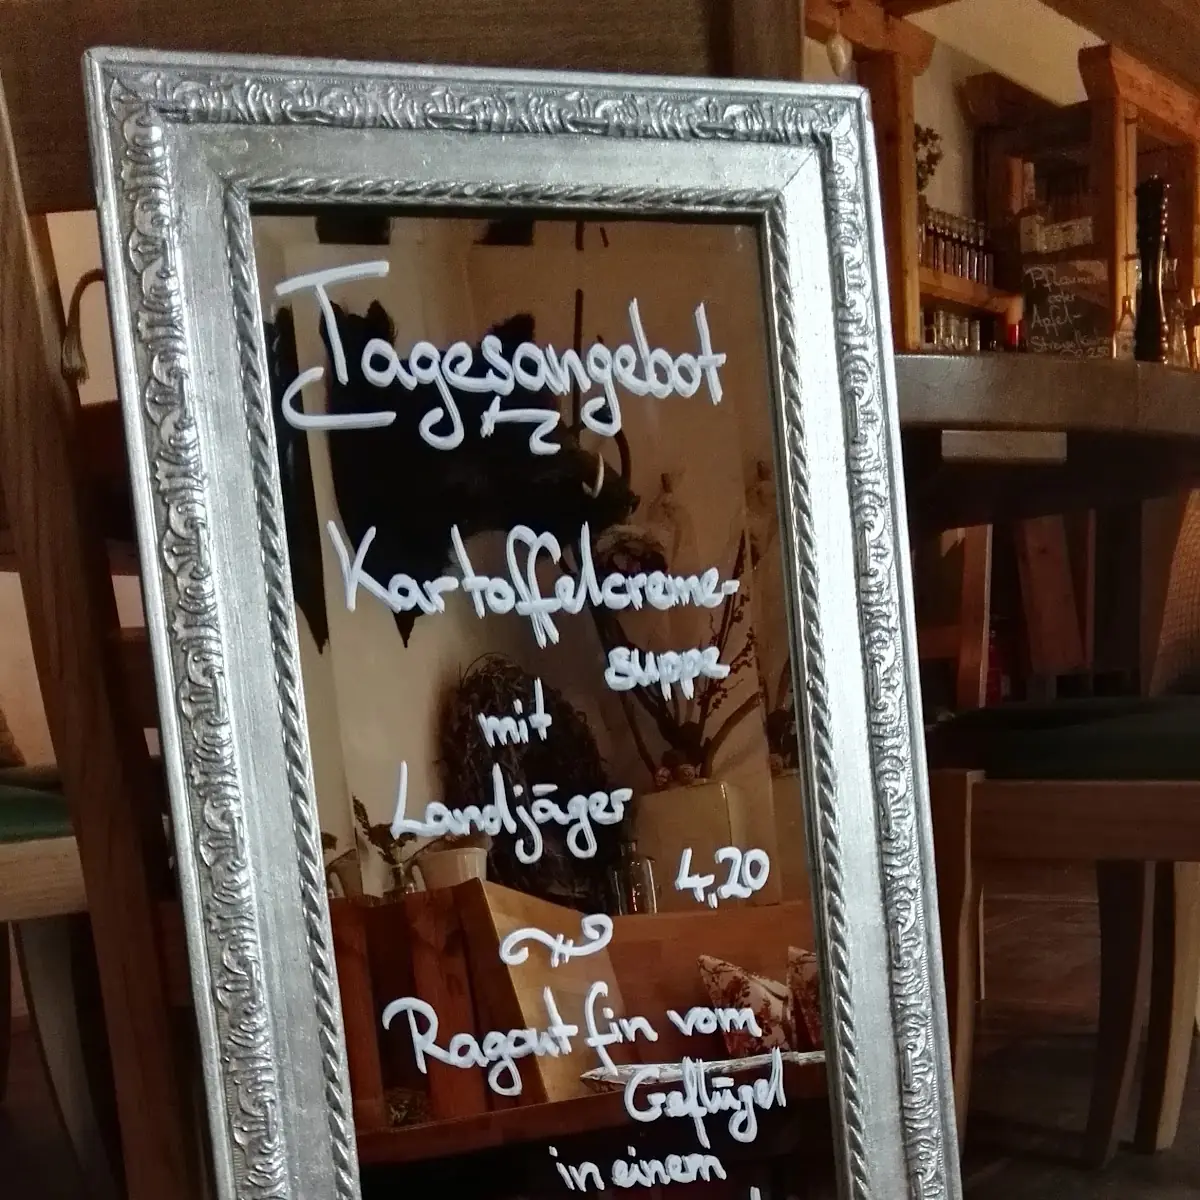 Tagesangebot
Kartoffelcreme-
suppe
mit
Landjäger
4,20
Ragout fin vom
Geflügel
in einem
Pflaumen
oder
Apfel-